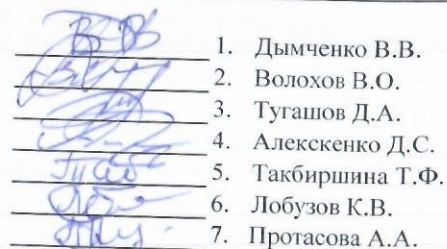 1. Дымченко В.В.
2. Волохов В.О.
3. Тугашов Д.А.
4. Алекскенко Д.С.
5. Такбиршина Т.Ф.
6. Лобузов К.В.
7. Протасова А.А.